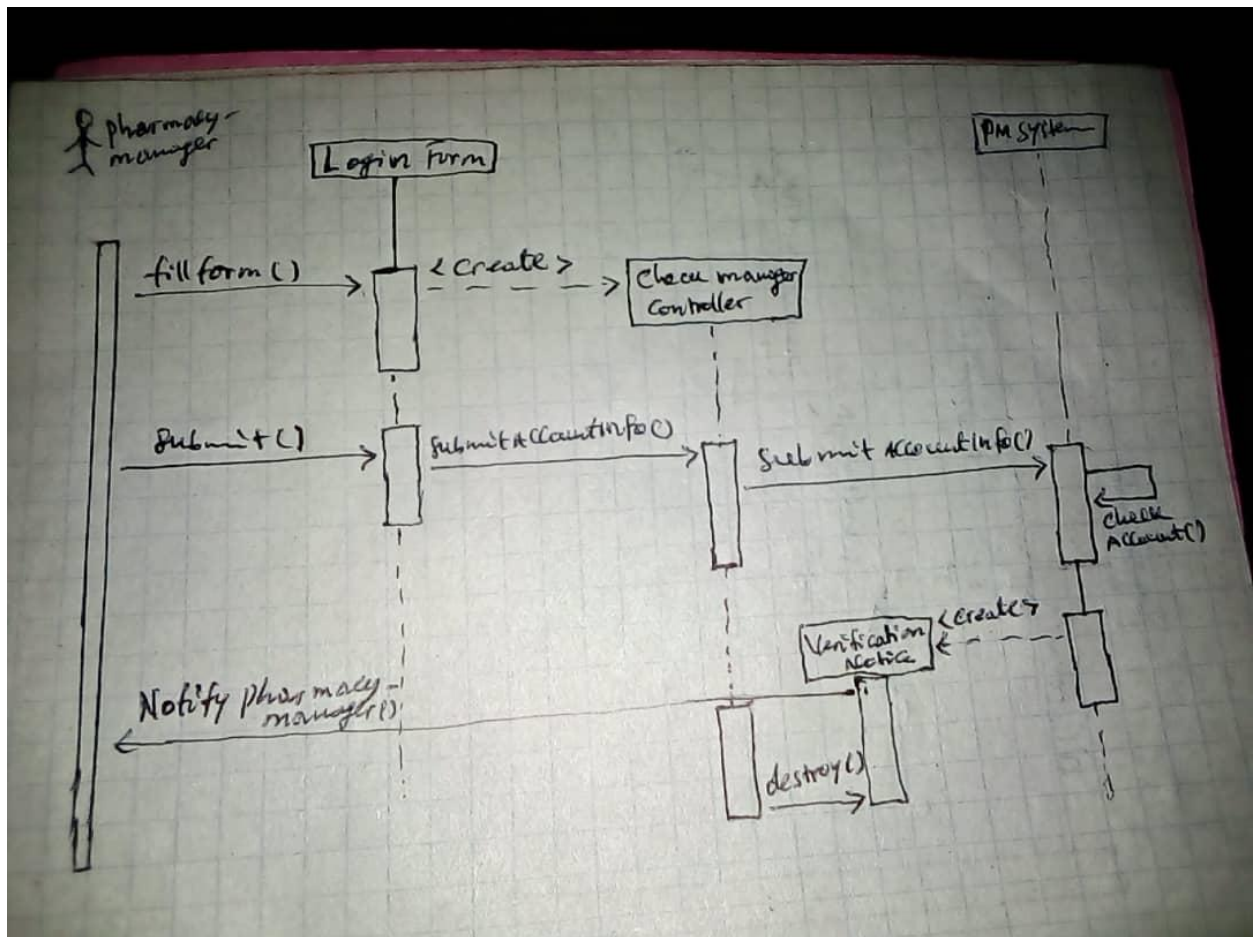 pharmacy-
manager
Login Form
PM System
fillform()
<create>
Check manager
Controller
Submit()
SubmitAccountInfo()
Submit AccountInfo()
check
Account()
<create>
Verification
Notice
Notify pharmacy-
manager()
destroy()